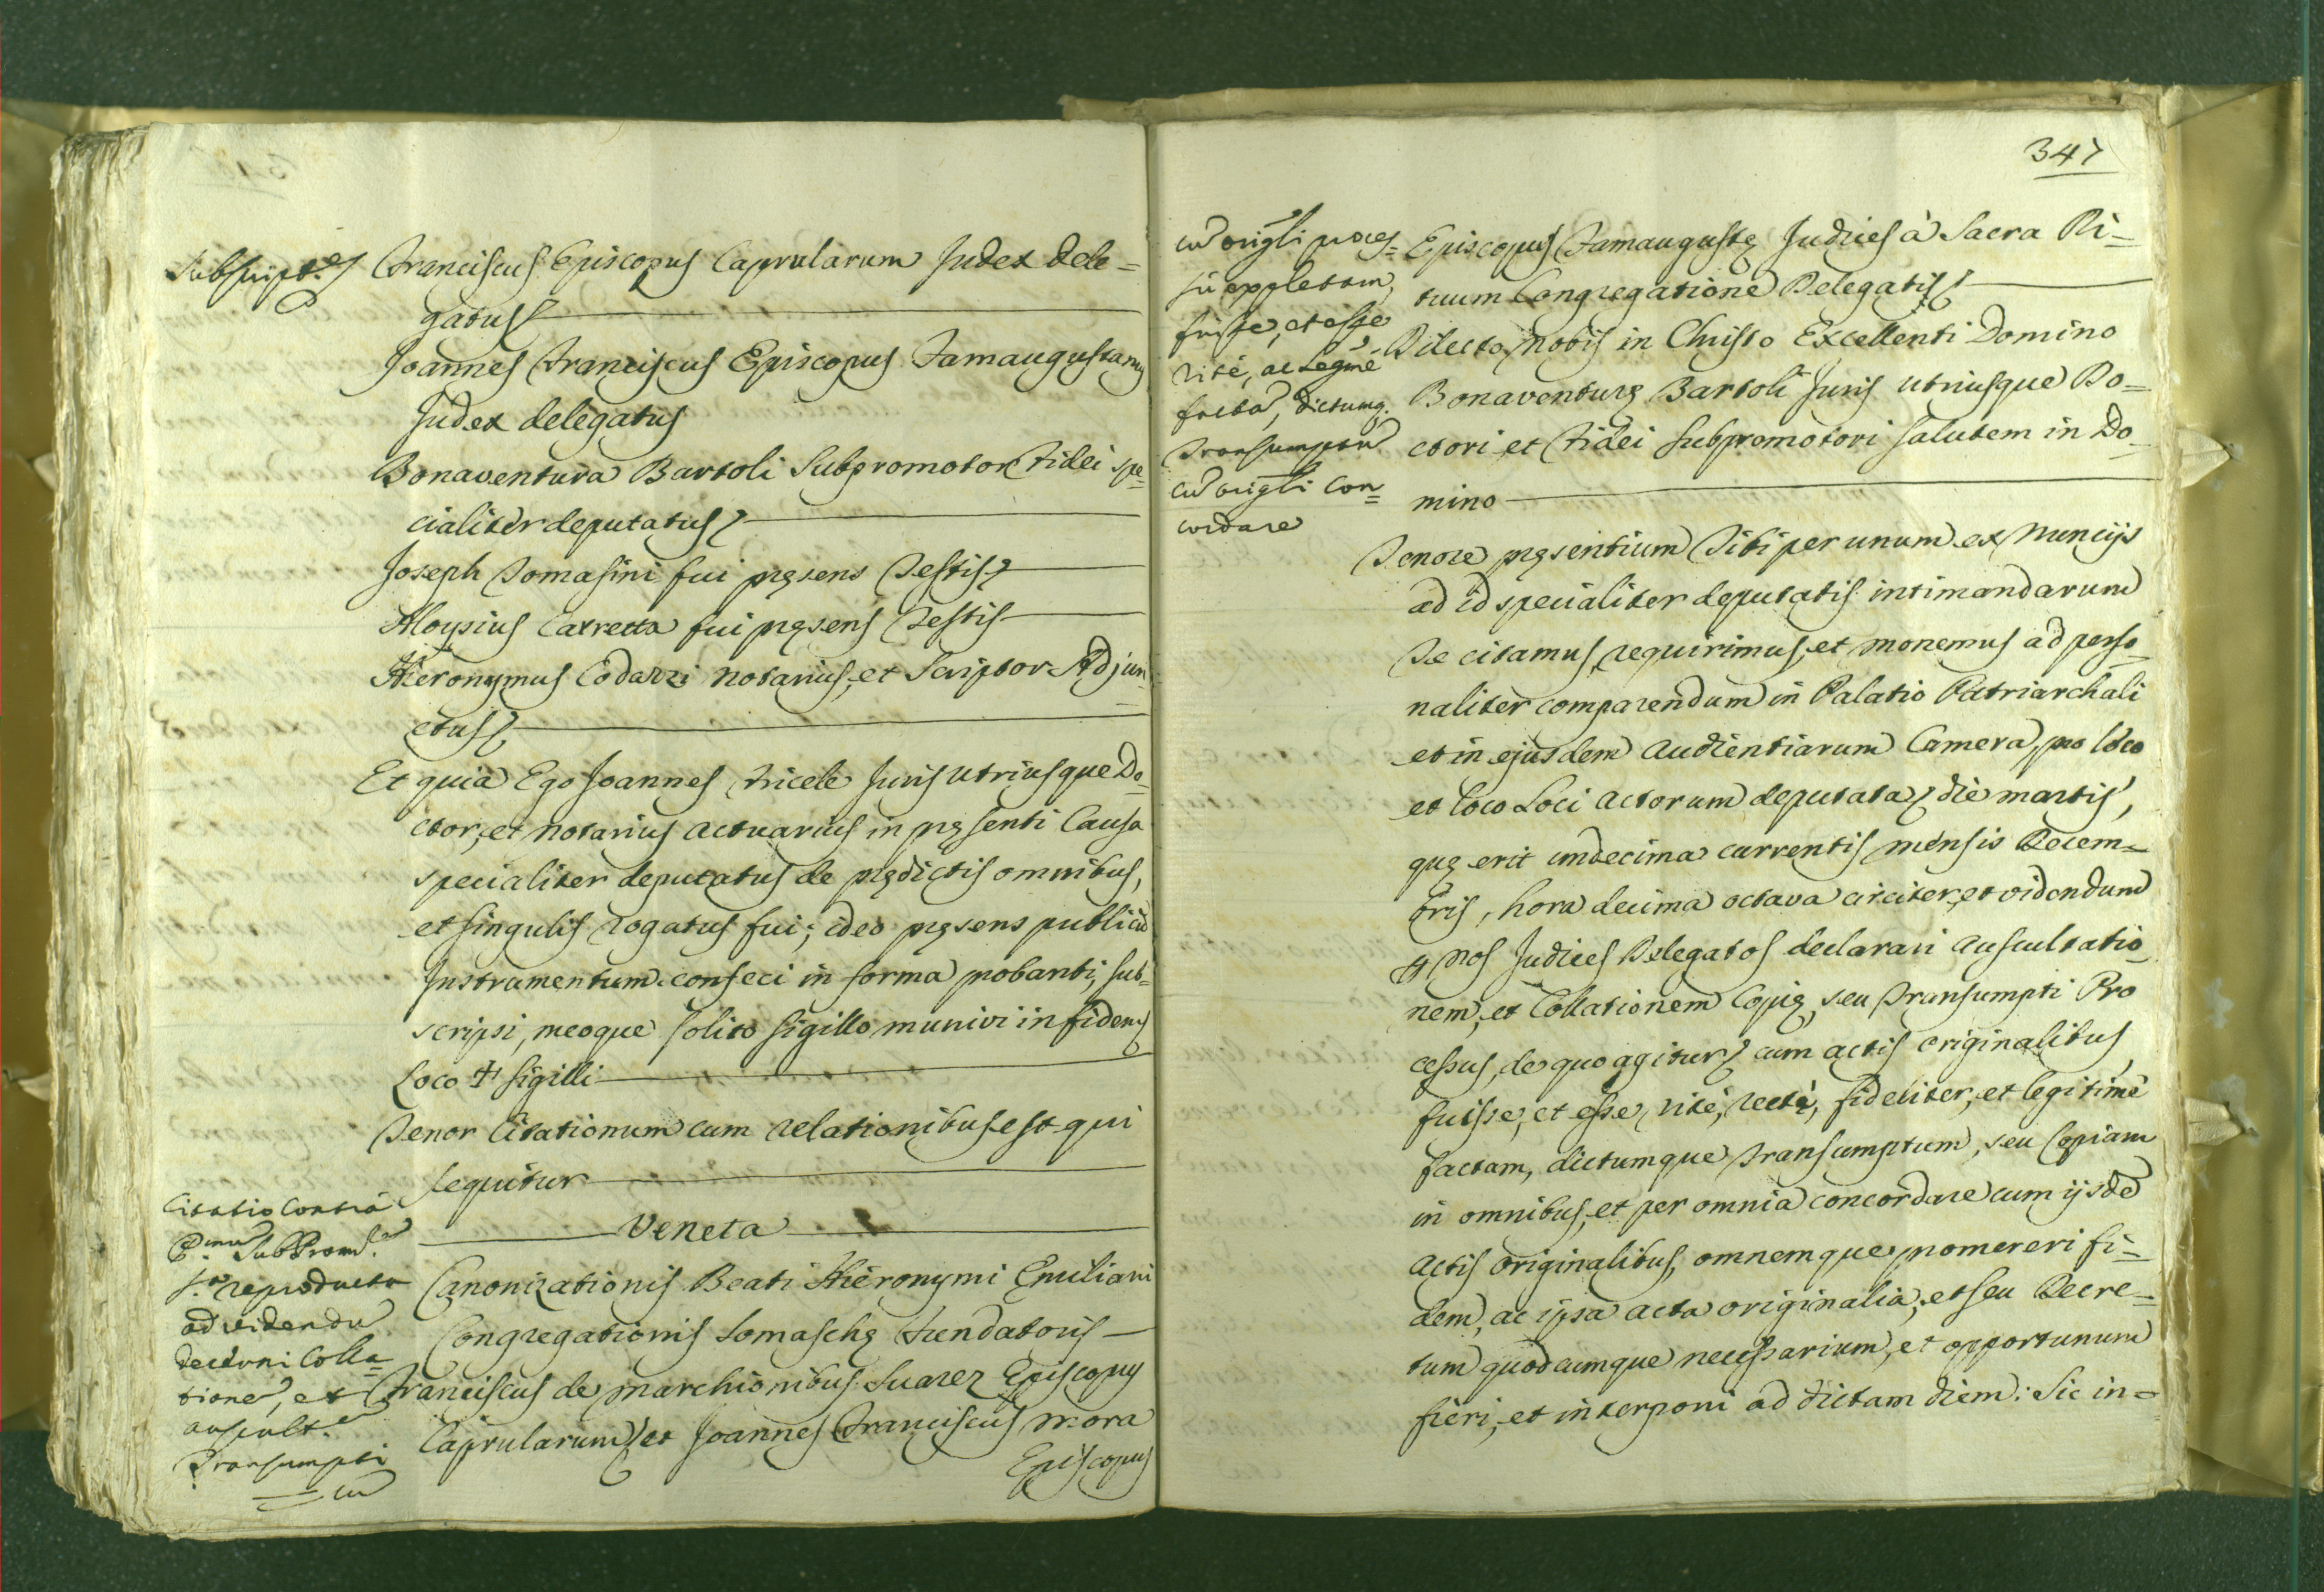 Subscript.es
Franciscus Episcopus Caprularum Judex dele=
gatus
Joannes Franciscus Episcopus Famaugustanus
Judex delegatus
Bonaventura Bartoli Subpromotor Fidei spe=
cialiter deputatus
Joseph Tomasini fui pręsens Testis
Aloysius Carretta fui pręsens Testis
Hieronymus Codazzi Notarius, et Scriptor Adjun=
ctus
Et quia Ego Joannes Fricele Juris Utriusque Do=
ctor, et Notarius Actuarius in pręsenti Causa
specialiter deputatus de prędictis omnibus,
et singulis rogatus fui; ideo pręsens publicū
Instrumentum confeci in forma probanti, sub=
scripsi, meoque solito sigillo munivi in fidem
Loco + sigilli
Tenor Citationum cum relationibus est qui
sequitur
Veneta
Canonizationis Beati Hieronymi Emiliani
Congregationis Somaschę Fundatoris
Franciscus de Marchionibus Suarez Episcopus
Caprularum, et Joannes Franciscus Mora
Episcopus
Citatio Contrà
SubProm.
reproducta
ad videndū
declarari Colla=
tione, et
auscult.
Transumpti
cū
347
cū origli proces=
sū expletam,
fuisse, et esse
ritè, ac legmè
factā, dictumq.
Transumptū
cū origli con=
cordare
Episcopus Famaugustę Judices à Sacra Ri=
tuum Congregatione Delegatis
Dilecto nobis in Christo Excellenti Domino
Bonaventurę Bartoli Juris Utriusque Do=
ctori et Fidei Subpromotori salutem in Do=
mino
Tenore pręsentium Tibi per unum ex Nuncijs
ad id specialiter deputatis intimandarum
Te citamus, requirimus, et monemus ad perso=
naliter comparendum in Palatio Patriarchali
et in ejusdem Audientiarum Camera, pro loco
et loco Loci Actorum deputata, die martis,
quę erit undecima currentis mensis Decem=
bris, hora decima octava circiter, et videndum
Nos Judices Delegatos declarari Auscultatio=
nem, et Collationem Copię, seu Transumpti Pro
cessus, de quo agitur, cum actis originalibus
fuisse, et esse, ritè, rectè, fideliter, et legitimè
factam, dictumque Transumptum, seu Copiam
in omnibus, et per omnia concordare cum ijsdē
Actis originalibus, omnemque promereri fi=
dem, ac ipsa acta originalia, et seu Decre=
tum quodcumque necessarium, et opportunum
fieri, et interponi ad dictam diem: Sic in=